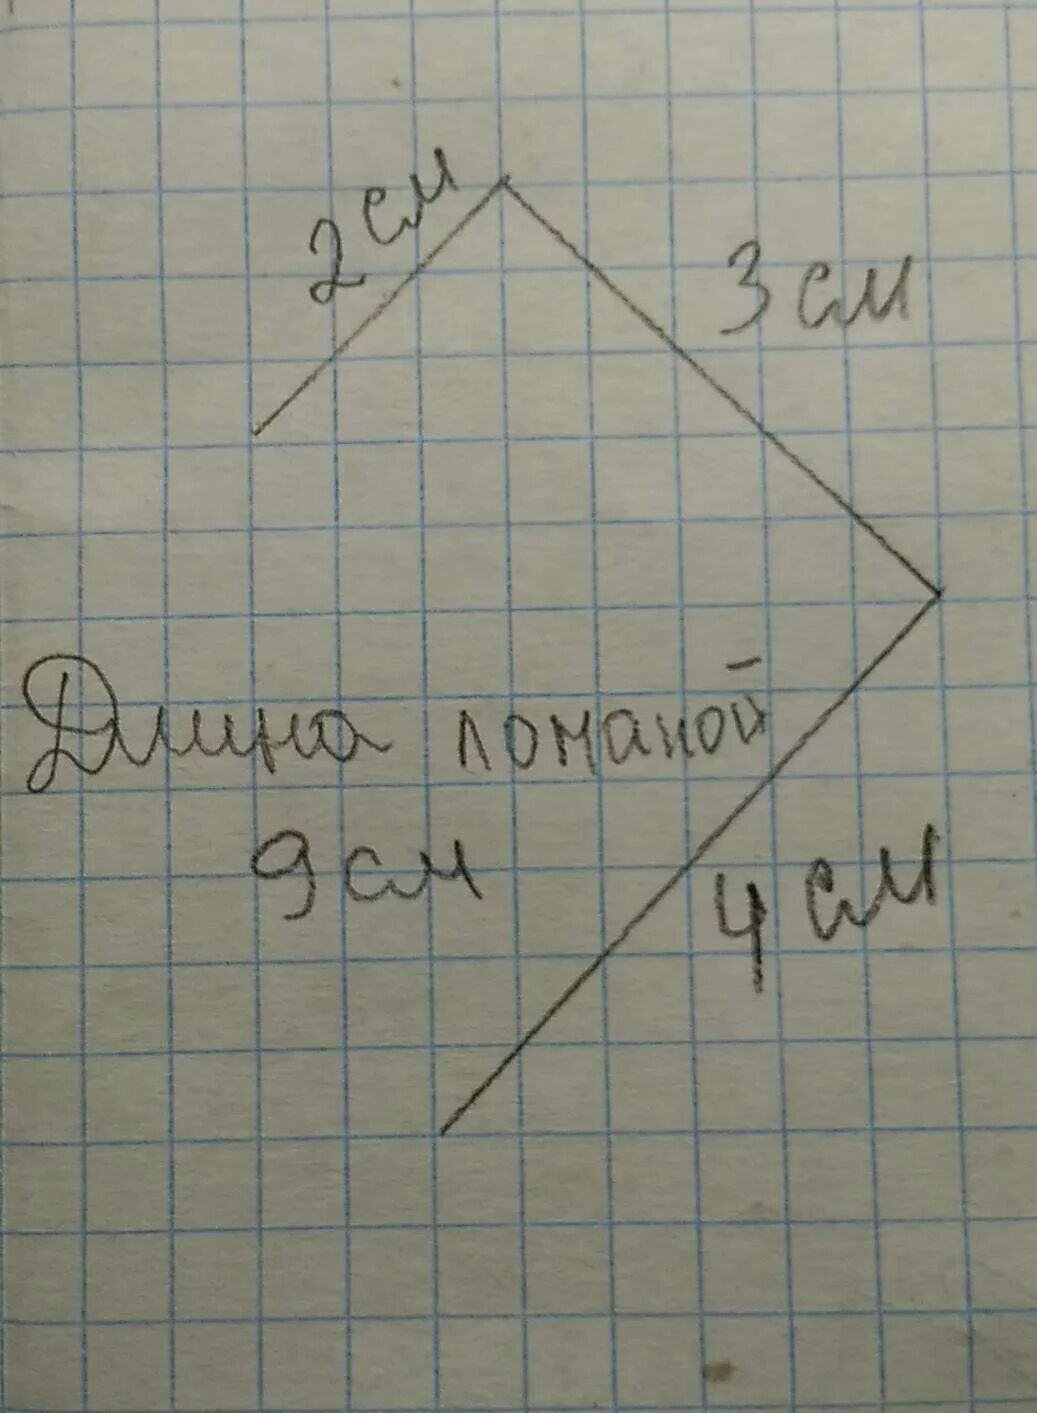 2 см
3 см
Длина ломаной
9 см
4 см